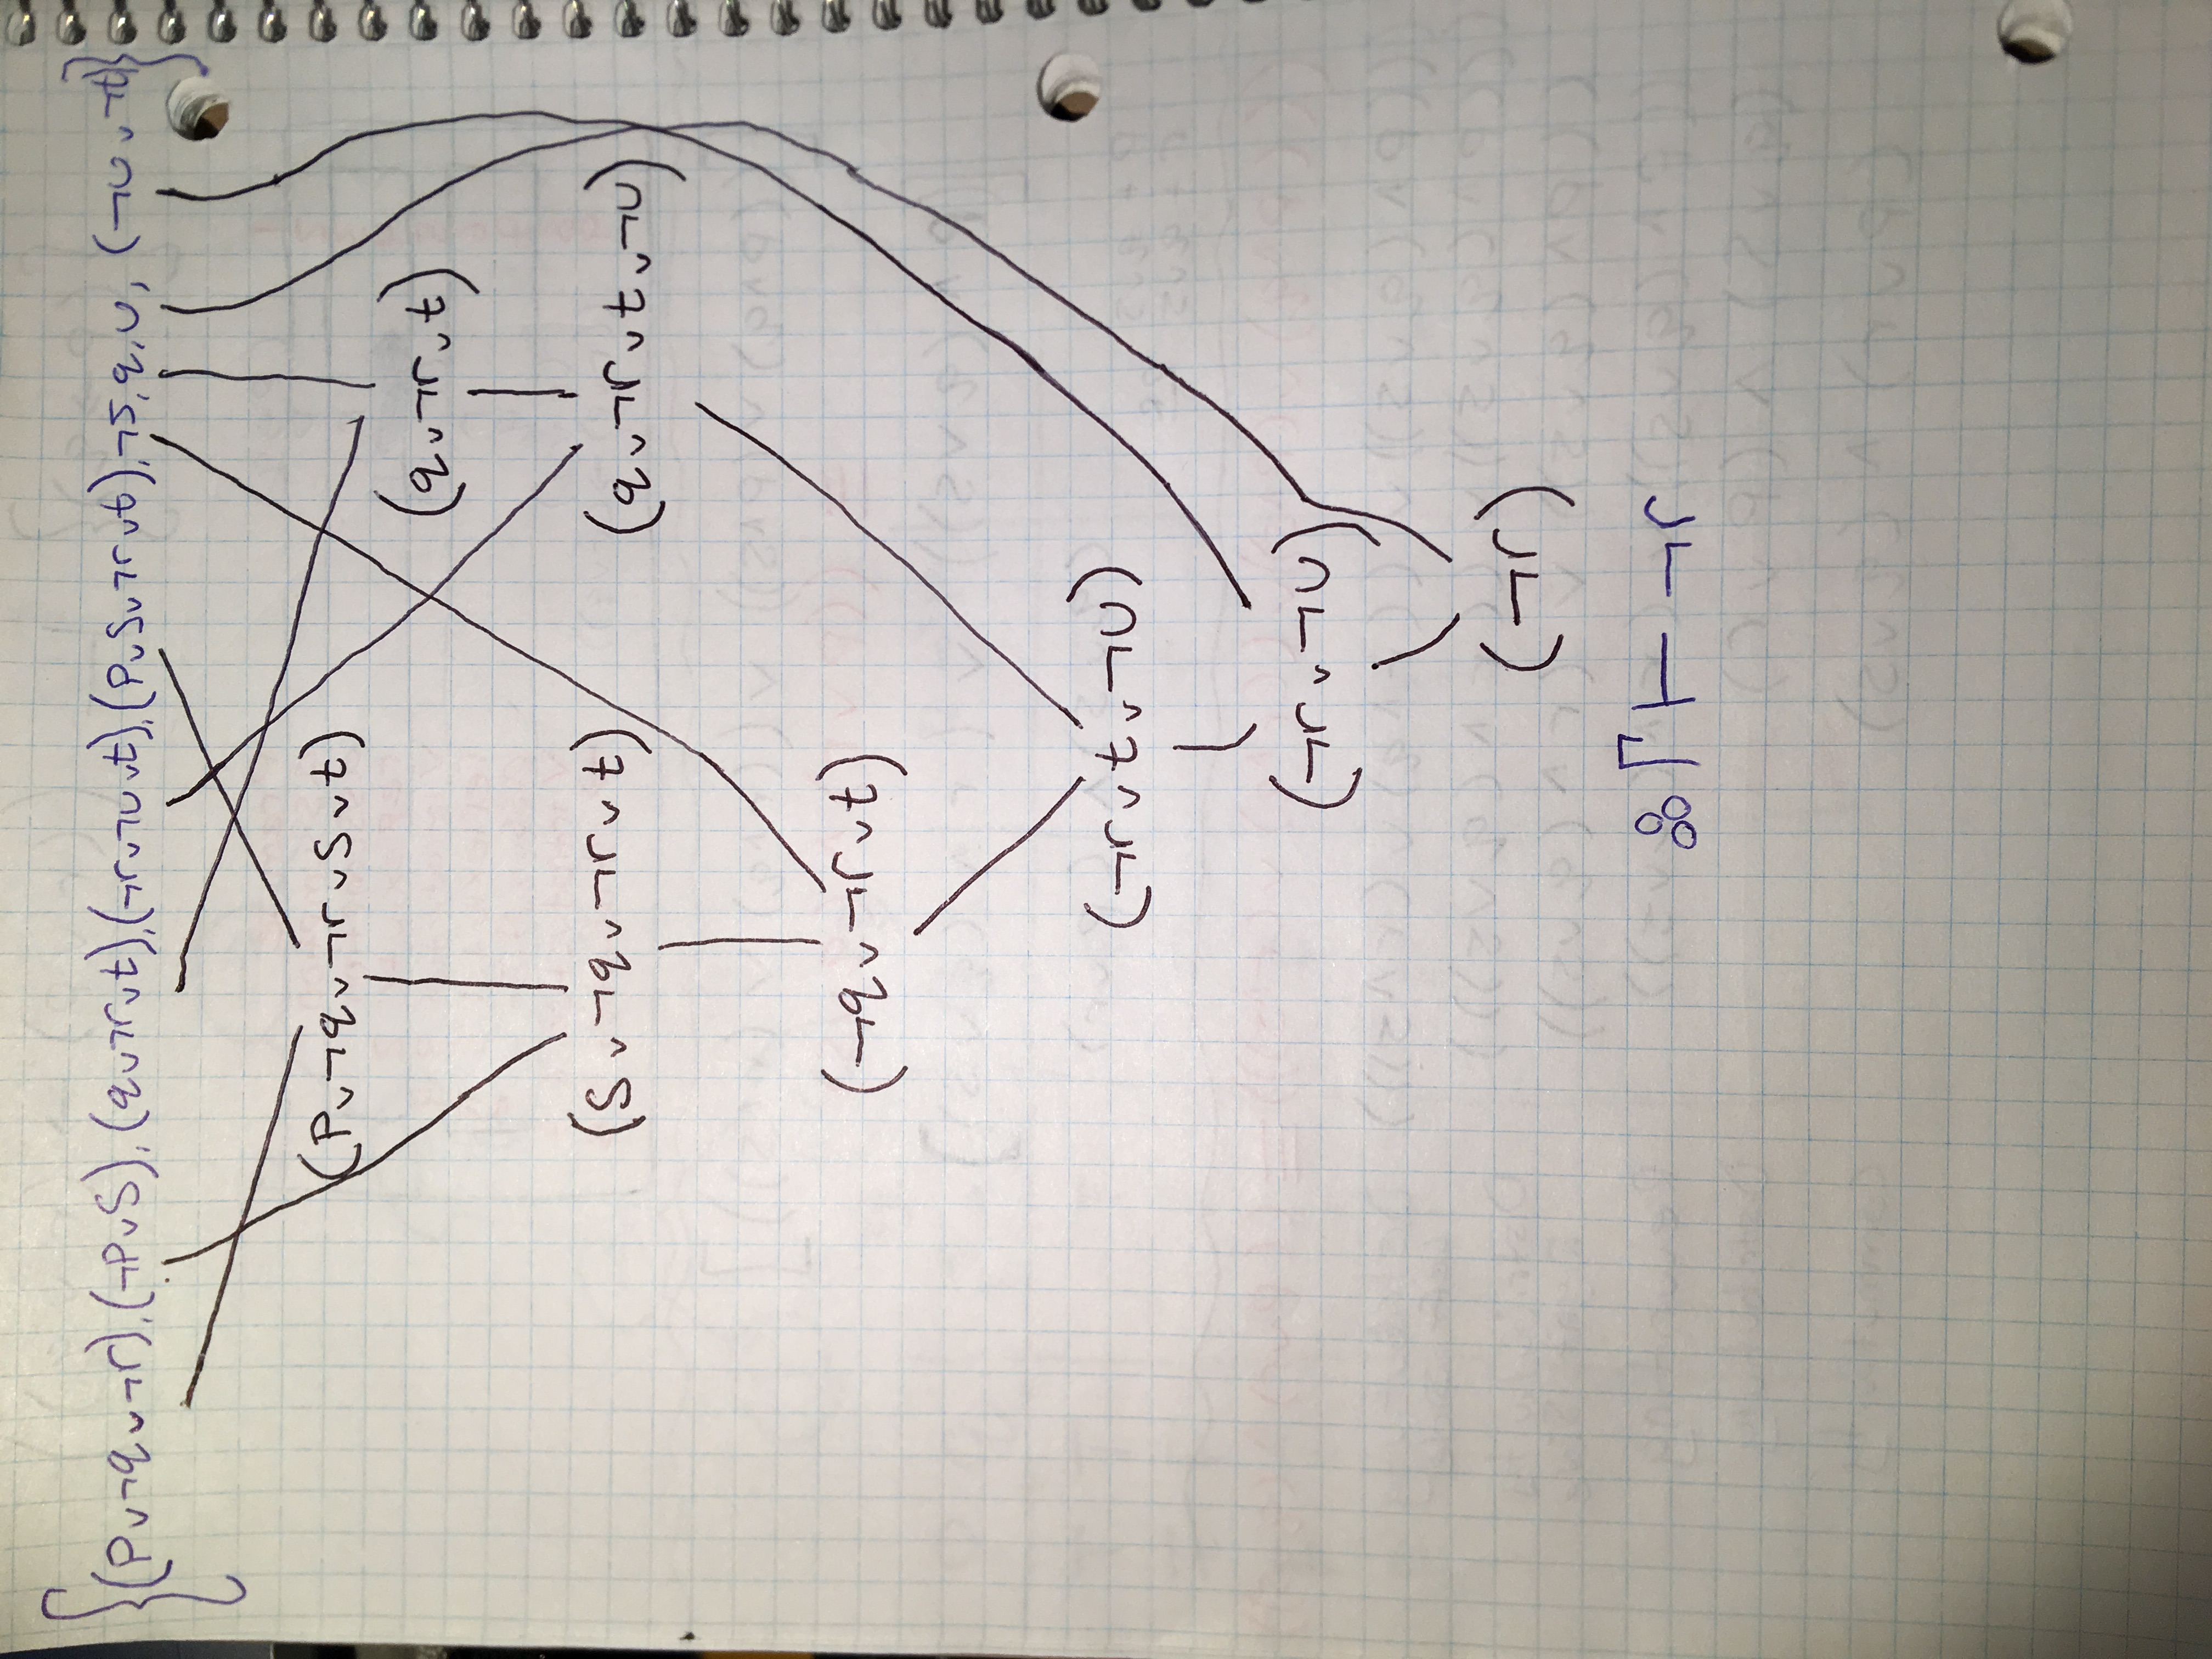 {(p∨¬q∨¬r),(¬p∨s),(q∨¬r∨t),(¬r∨¬u∨t),(p∨s∨¬r∨t),¬s,q,u,(¬u∨¬t)}
(p∨¬q∨¬r∨s∨t)
(q∨¬r∨t)
(s∨¬q∨¬r∨t)
(q∨¬r∨t∨¬u)
(¬q∨¬r∨t)
(¬r∨t∨¬u)
(¬r∨¬u)
(¬r)
∴ Γ ⊢ ¬r